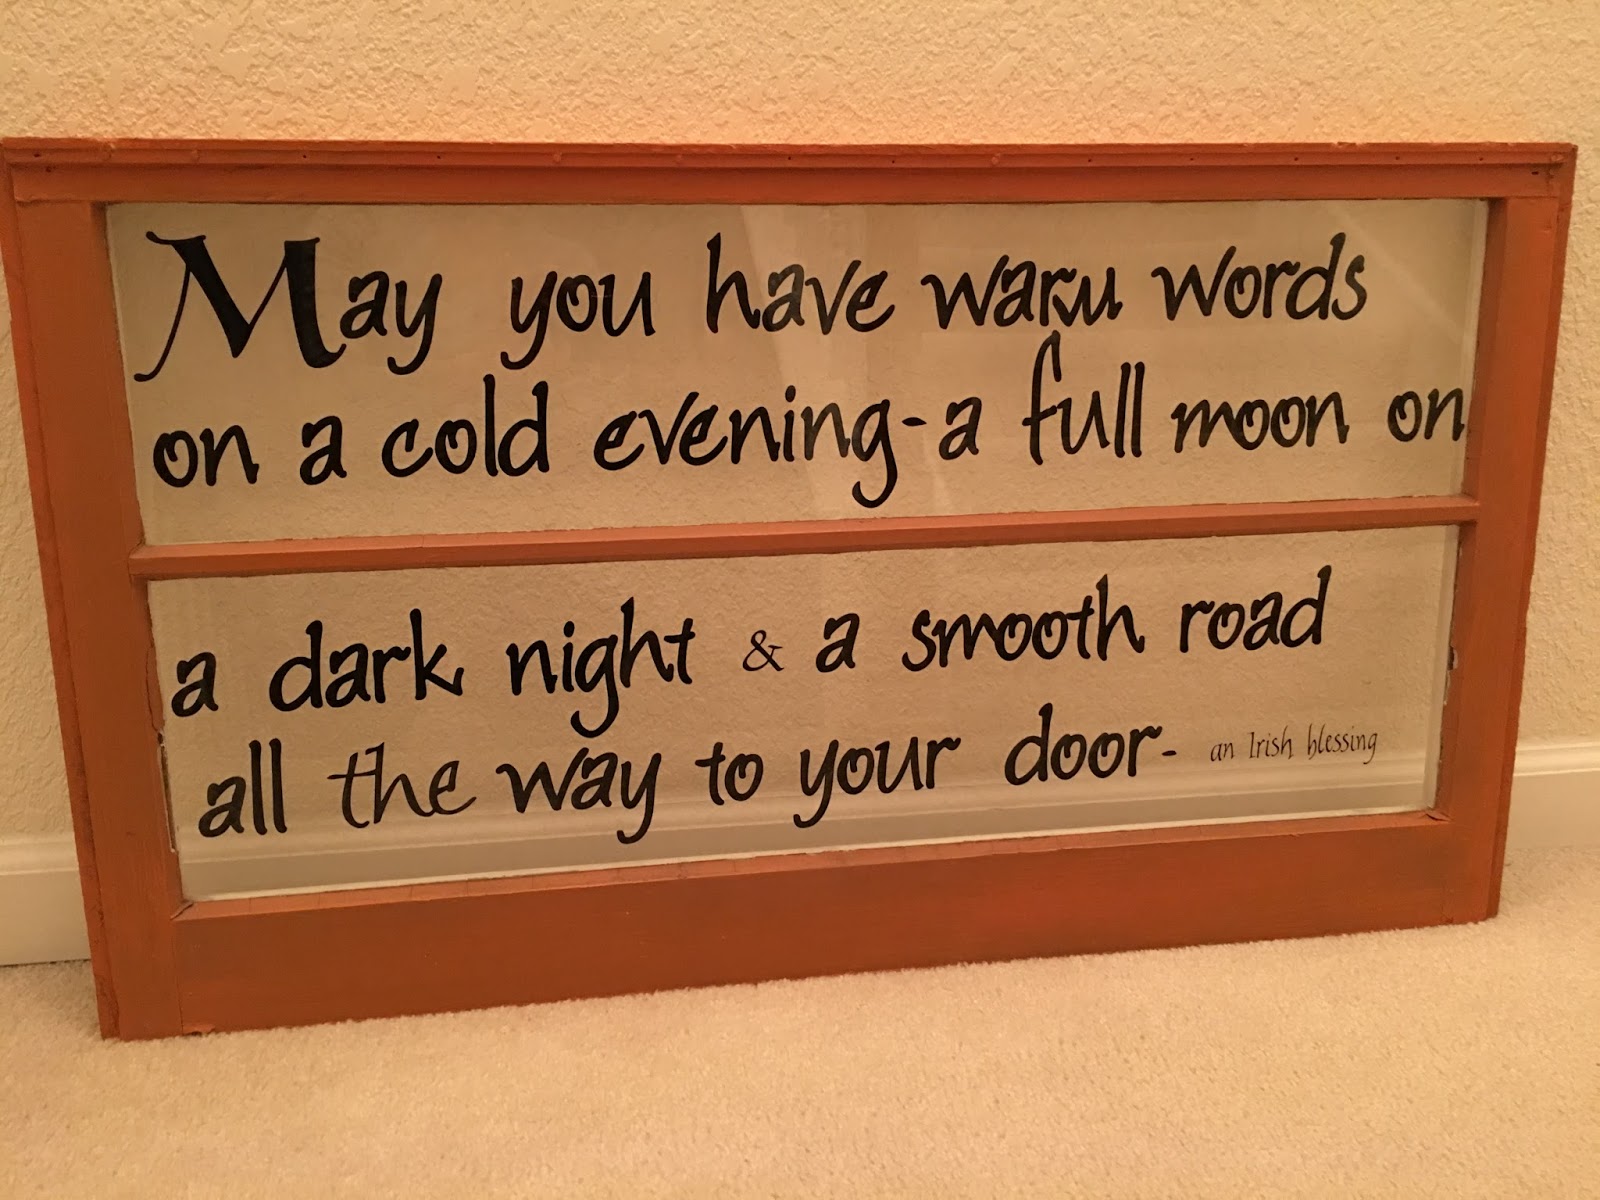 May you have waru words
on a cold evening-a full moon on
a dark night & a smooth road
all the way to your door- an Irish blessing